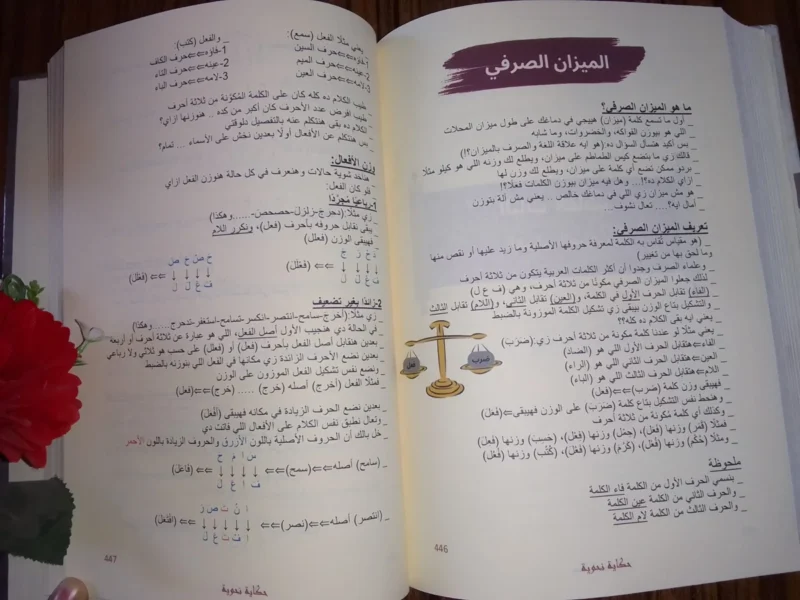 الميزان الصرفي
ما هو الميزان الصرفي؟
_ أول ما تسمع كلمة (ميزان) هييجي في دماغك على طول ميزان المحلات
اللي هو بيوزن الفواكه، والخضروات، وما شابه
_ بس أكيد هتسأل السؤال ده (هو ايه علاقة اللغة والصرف بالميزان؟!)
_ فالذي زي ما بتضع كيس الطماطم على ميزان، ويطلع لك وزنه اللي هو كيلو مثلًا
_ بردو ممكن تضع أي كلمة على ميزان، ويطلع لك وزن لها
_ ازاي الكلام ده؟!... وهل فيه ميزان بيوزن الكلمات فعلًا؟!
_ هو مش ميزان زي اللي في دماغك خالص .. يعني مش آلة بتوزن
_ أمال ايه؟.... تعال نشوف...
تعريف الميزان الصرفي:
_ (هو مقياس تُقاس به الكلمة لمعرفة حروفها الأصلية وما زيد عليها أو نقص منها
وما لحق بها من تغيير)
_ وعلماء الصرف وجدوا أن أكثر الكلمات العربية يتكون من ثلاثة أحرف
_ لذلك جعلوا الميزان الصرفي مكونًا من ثلاثة أحرف، وهي (ف ع ل)
_ (الفاء) تقابل الحرف الأول في الكلمة، و(العين) تقابل الثاني، و(اللام) تقابل الثالث
_ والتشكيل بتاع الوزن بيبقى زي تشكيل الكلمة الموزونة بالضبط
_ يعني ايه بقى الكلام ده كله؟؟
_ يعني مثلًا لو عندنا كلمة مكونة من ثلاثة أحرف زي: (ضَرَبَ)
الفاء⇐هتقابل الحرف الأول اللي هو (الضاد)
العين⇐هتقابل الحرف الثاني اللي هو (الراء)
اللام⇐هتقابل الحرف الثالث اللي هو (الباء)
_ فهيبقى وزن كلمة (ضرب)⇐⇐(فعل)
_ وهنحط نفس التشكيل بتاع كلمة (ضَرَبَ) على الوزن فهيبقى⇐(فَعَلَ)
_ وكذلك أي كلمة مُكونة من ثلاثة أحرف
_ فمثلًا (قَمَر) وزنها (فَعَل)، (حِمْل) وزنها (فِعْل)، (حَسِبَ) وزنها (فَعِلَ)
_ ومثلًا (حُكْم) وزنها (فُعْل)، (كَرُمَ) وزنها (فَعُلَ)، (كُتُب) وزنها (فُعُل)
ضَرَبَ
فعل
ملحوظة
_ بنسمي الحرف الأول من الكلمة فاء الكلمة
_ والحرف الثاني من الكلمة عين الكلمة
_ والحرف الثالث من الكلمة لام الكلمة
446
حكاية نحوية
_ يعني مثلًا الفعل (سمع):
1-فاؤه⇐⇐حرف السين
2-عينه⇐⇐حرف الميم
3-لامه⇐⇐حرف العين
_ والفعل (كتب):
1-فاؤه⇐⇐حرف الكاف
2-عينه⇐⇐حرف التاء
3-لامه⇐⇐حرف الباء
_ طيب الكلام ده كله كان على الكلمة المُكوّنة من ثلاثة أحرف
_ طيب افرض عدد الأحرف كان أكبر من كده .. هنوزنها ازاي؟
_ الكلام ده بقى هنتكلم عنه بالتفصيل دلوقتي
_ بس هنتكلم عن الأفعال أولًا بعدين نخش على الأسماء ... تمام؟
وزن الأفعال:
_ هناخد شوية حالات وهنعرف في كل حالة هنوزن الفعل ازاي
_ لو كان الفعل:
1-رباعيًا مُجرّدًا
_ زي مثلًا: (دحرج-زلزل-حصحص-.....وهكذا)
_ يبقى تقابل حروفه بأحرف (فعل)، وتكرر اللام
_ فهيبقى الوزن (فعلل)
د ح ر ج
↓ ↓ ↓ ↓ ⇐⇐ (فَعْلَلَ)
فَ عْ لَ لَ
ح ص ح ص
↓ ↓ ↓ ↓ ⇐⇐ (فَعْلَلَ)
فَ عْ لَ لَ
2-زائدًا بغير تضعيف
_ زي مثلًا: (أخرج-سامح-انتصر-انكسر-تسامح-استغفر-تدحرج....وهكذا)
_ في الحالة دي هنجيب الأول أصل الفعل، اللي هو عبارة عن ثلاثة أحرف أو أربعة
_ بعدين هنقابل أصل الفعل بأحرف (فعل) أو (فعلل) على حسب هو ثلاثي ولا رباعي
_ بعدين نضع الأحرف الزائدة زي مكانها في الفعل اللي بنوزنه بالضبط
_ ونضع نفس تشكيل الفعل الموزون على الوزن
_ فمثلًا الفعل (أخرج) أصله (خرج) ..... (خرج)⇐⇐(فعل)
_ بعدين نضع الحرف الزيادة في مكانه فهيبقى (أَفْعَلَ)
_ وتعال نطبق نفس الكلام على الأفعال اللي فاتت دي
_ خل بالك أن الحروف الأصلية باللون الأزرق والحروف الزيادة باللون الأحمر
س ا م ح
_ (سامح) أصله⇐⇐(سمح)⇐⇐ ↓ ↓ ↓ ↓ ⇐⇐ (فَاعَلَ)
فَ ا عَ لَ
ا ن ت ص ر
_ (انتصر) أصله⇐⇐(نصر)⇐⇐ ↓ ↓ ↓ ↓ ↓ ⇐⇐ (افْتَعَلَ)
ا فْ تَ عَ لَ
447
حكاية نحوية